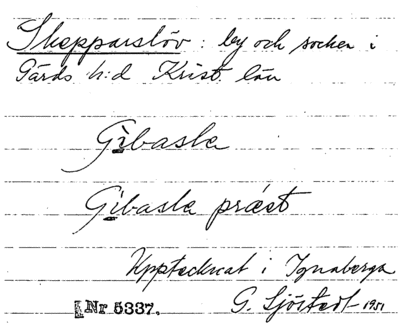 Skepparslöv: by och socken i
Gärds h:d Krist. län
Gibaska
Gibaska præst
Upptecknat i Ignaberga
Nr 5337. G. Sjöstedt 1931